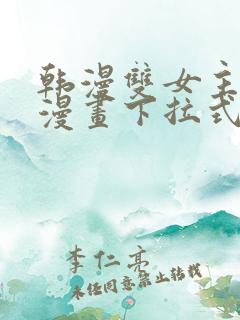 韩漫雙女主
漫畫下拉式
李仁亮
未经同意禁止转载